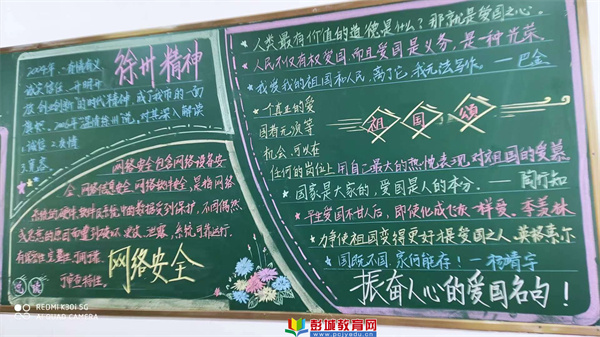 徐州精神
2004年,有情有义
诚实诚信、开明开
放、创业创新的时代精神,成了我市的一面
旗帜
1.诚信 2.友情
3.宽容
网络安全包含网络设备安
全、网络信息安全、网络软件安全,是指网络
系统的硬件、软件及系统中的数据受到保护,不因偶然
或恶意的原因而遭到破坏、更改、泄露,系统可靠运行.
网络安全
人类最有价值的道德是什么?那就是爱国之心。
人民不仅有权爱国,而且爱国是义务,是一种光荣
我爱我的祖国和人民,离了它,我无法写作。—巴金
一个真正的爱
国者无次等
机会,可以在
任何的岗位上用自己最大的热忱表现对祖国的爱慕
祖国颂
国家是大家的,爱国是人的本分。—陶行知
平生爱国不甘人后,即使化成飞灰一样爱。季羡林
力争使祖国变得更好,才是爱国之人 英格索尔
国既不国,家何能存!—杨靖宇
振奋人心的爱国名句!
REDMI K30i 5G
AI QUAD CAMERA
彭城教育网
www.pcjyedu.cn